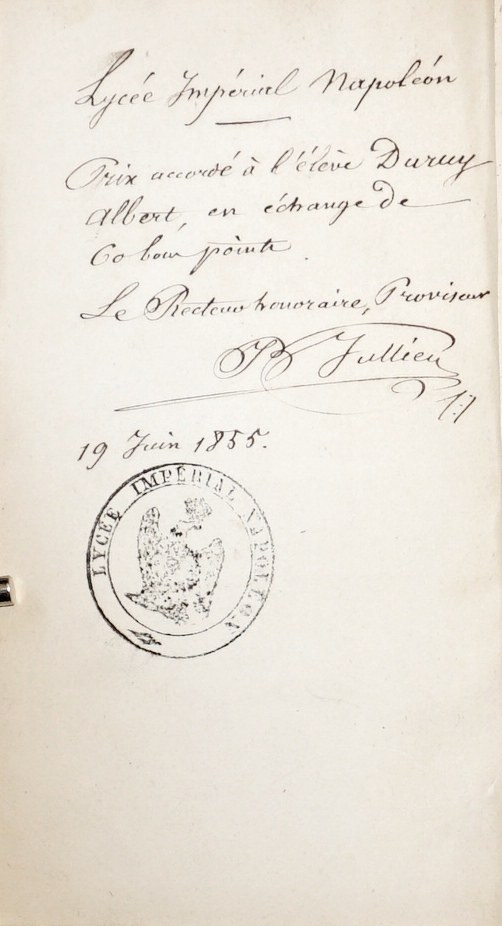 Lycée Impérial Napoléon
Prix accordé à l'élève Duruy
Albert, en échange de
60 bons points
Le Recteur honoraire, Proviseur
Jullien
19 Juin 1855.
LYCÉE IMPÉRIAL NAPOLÉON